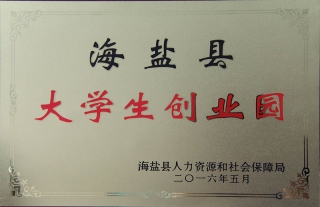 海盐县
大学生创业园
海盐县人力资源和社会保障局
二〇一六年五月